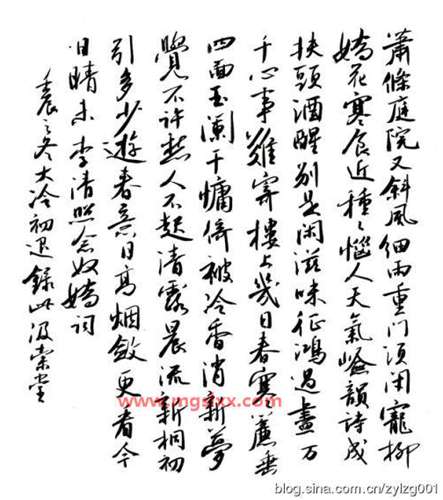 蕭條庭院又斜風細雨重門須閉寵柳
嬌花寒食近種〻惱人天氣嶮韻詩成
扶頭酒醒別是閑滋味征鴻過盡万
千心事難寄樓上幾日春寒簾垂
四面玉闌干慵倚被冷香消新夢
覺不許愁人不起清露晨流新桐初
引多少遊春意日高烟斂更看今
日晴未 李清照念奴嬌詞
壬辰之冬大冷初退錄此
www.mgsxx.com
blog.sina.com.cn/zylzg001